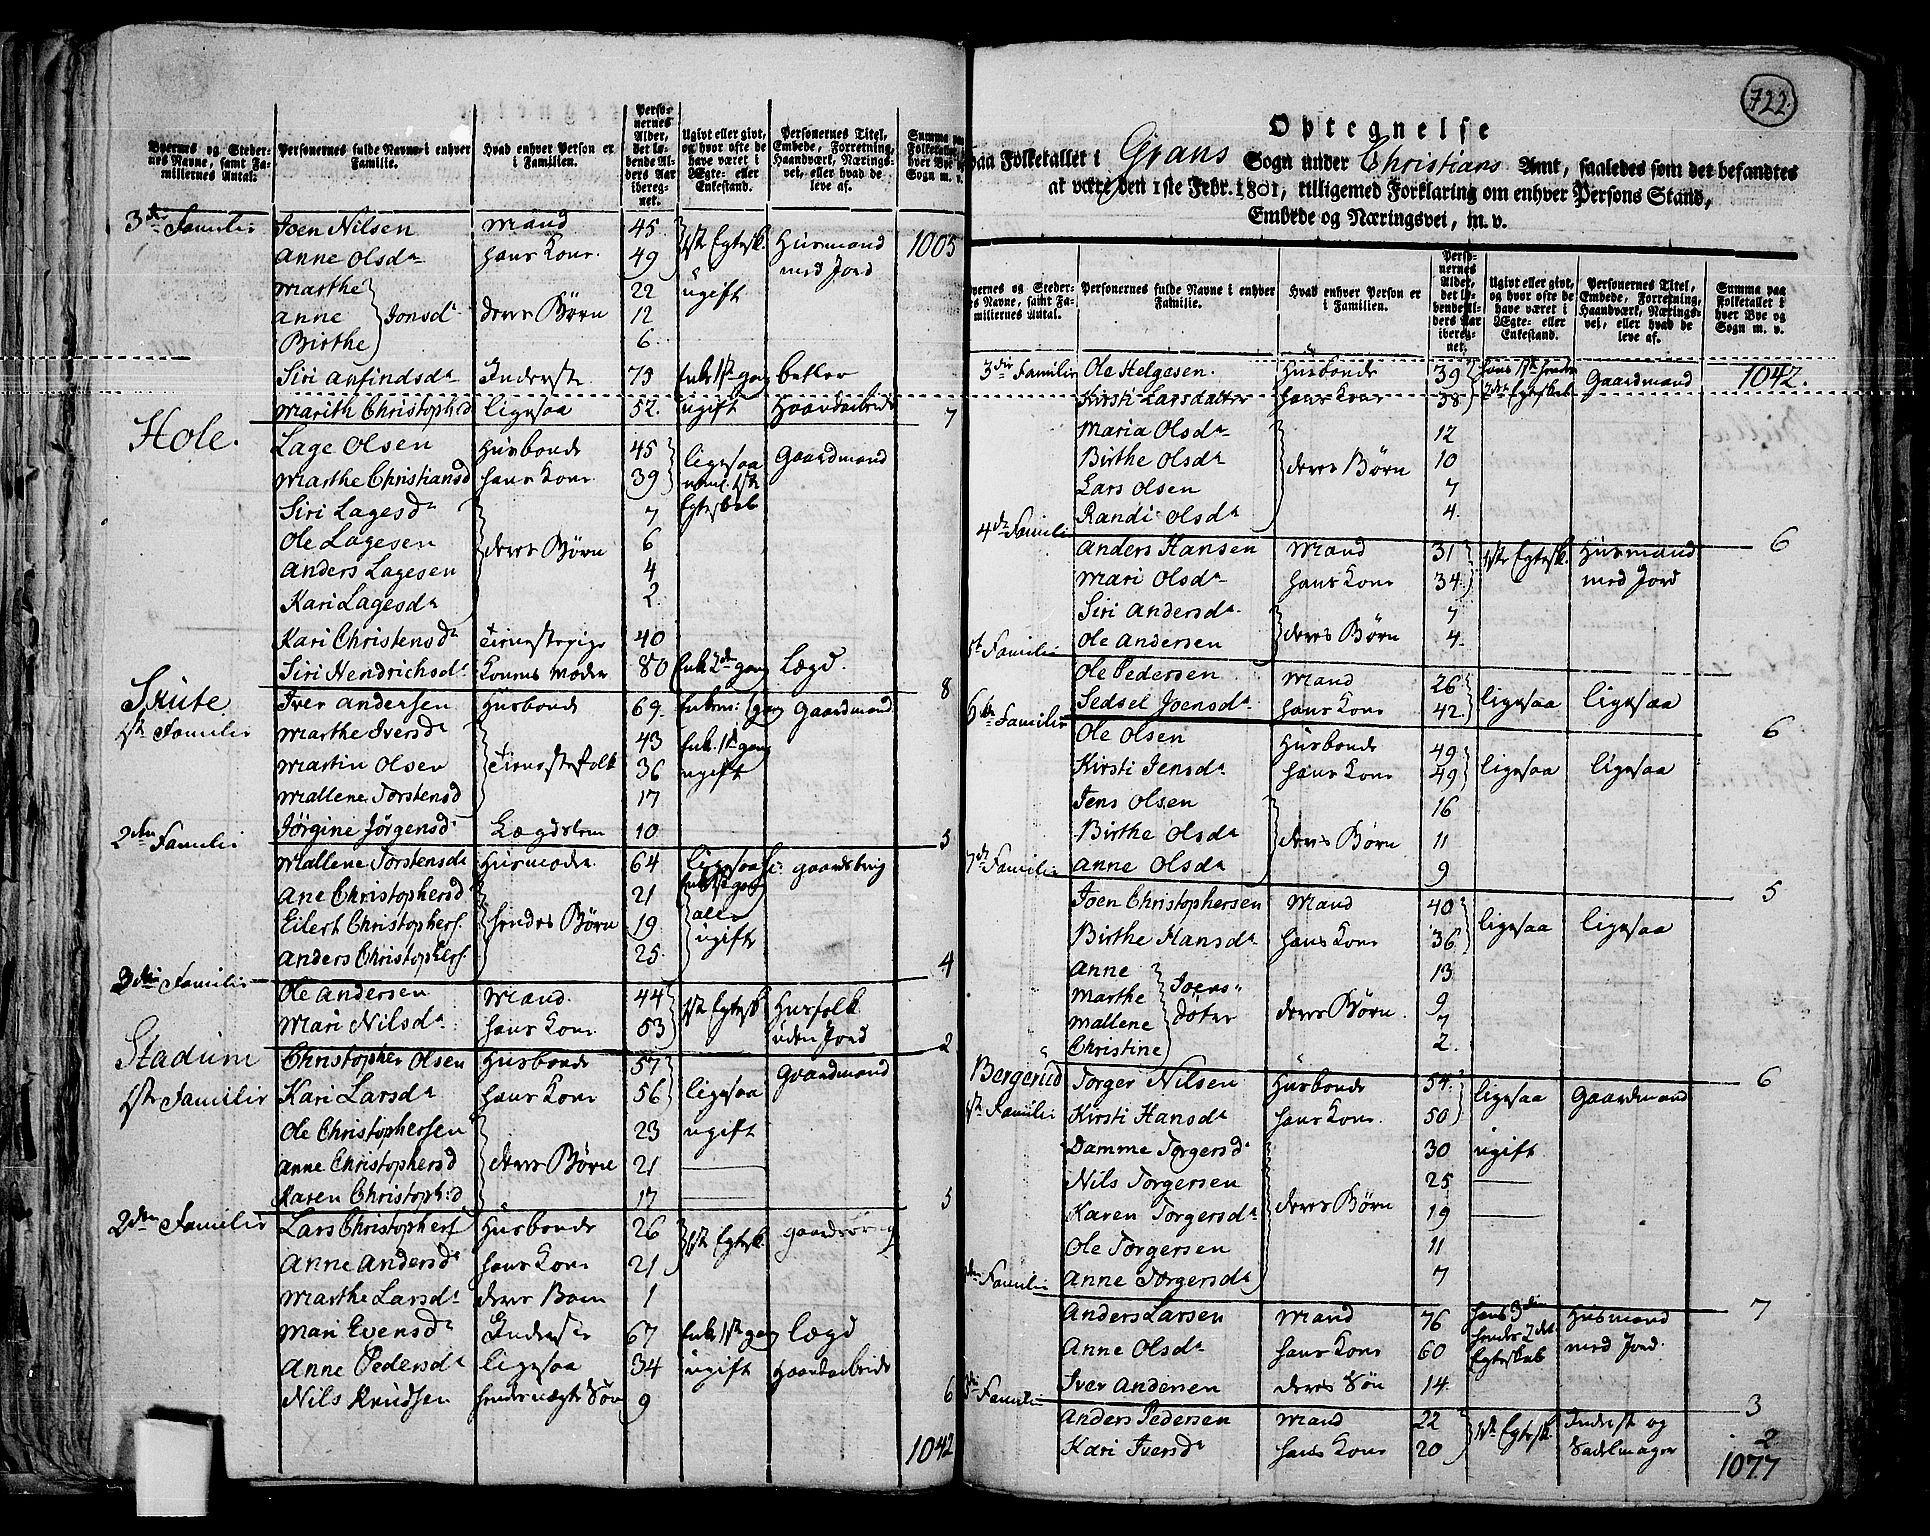 Byernes og Steder-
nes Navne, samt Fa-
milliernes Antal.
Personernes fulde Navne i enhver
Familie.
Hvad enhver Person er
i Familien.
Perso-
nernes
Alder,
det lø-
bende Al-
ders Aar
ibereg-
net.
Ugivt eller givt,
og hvor ofte de
have været i
Ægte- eller
Enkestand.
Personernes Titel,
Embede, Forretning,
Haandværk, Nærings-
vei, eller hvad de
leve af.
Summa paa
Folketallet i
hver Bye og
Sogn m. v.
3die Familie Joen Nilsen Mand 45 1ste Egtesk. Huusmand 1005
Anne Olsdr hans Kone 49 med Jord
Marthe 22 ugift
Anne Jonsdr deres Børn 12
Birthe 6
Siri Anfindsdr Inderste 73 Enke 1ste gang betler
Marith Christophd ligesaa 52 ugift Haandarbeide 7
Hole. Lage Olsen Husbonde 45 ligesaa Gaardmand
Marthe Christiansd hans Kone 39 neml. 1ste
Siri Lagesdr 7 Egteskab
Ole Lagesen deres Børn 6
Anders Lagesen 4
Kari Lagesdr 2
Kari Christensdr Tienestepige 40
Siri Hendrichsdr Konens Moder 80 Enke 2den gang Lægd. 8
Skute Iver Andersen Husbonde 69 Enkem: 1 gang Gaardmand
1ste Familie Marthe Iversdr 43 Enke 1ste gang
Martin Olsen Tienestefolk 36 ugift
Mallene Torstensd 17
Jørgine Jørgensdr Lægdslem 10 5
2den Familie
Mallene Torstensdr Husmoder 64 ligesaa gaardbrug
Ane Christophersd 21 Enke 1ste gang
Eilert Christophers. hendes Børn 19 alle
Anders Christophers. 25 ugifte 4
3die Familie
Ole Andersen Mand 44 1ste Egtesk. Husfolk
Mari Nilsdr hans Kone 53 uden Jord 2
Stadum Christopher Olsen Husbonde 57 ligesaa Gaardmand
1ste Familie Kari Larsdr hans Kone 56
Ole Christophersen 23 ugift
Anne Christophersd deres Børn 21
Karen Christoph:d 17 5
2den Familie Lars Christophers Husbonde 26 1ste Egtesk.
Anne Andersdr hans Kone 21
Marthe Larsdr deres Barn 1
Mari Evensdr Inderste 67 Enke 1ste gang lægd
Anne Pedersdr ligesaa 34 ugift Haandarbeide
Nils Knudsen hendes uægte Søn 9 6
1042
722.
Optegnelse
paa Folketallet i Grans Sogn under Christians Amt, saaledes som det befandtes
at være den 1ste Febr. 1801, tilligemed Forklaring om enhver Persons Stand,
Embede og Næringsvei, m. v.
Byernes og Steder-
nes Navne, samt Fa-
milliernes Antal.
Personernes fulde Navne i enhver
Familie.
Hvad enhver Person er
i Familien.
Perso-
nernes
Alder,
det lø-
bende Al-
ders Aar
ibereg-
net.
Ugivt eller givt,
og hvor ofte de
have været i
Ægte- eller
Enkestand.
Personernes Titel,
Embede, Forretning,
Haandværk, Nærings-
vei, eller hvad de
leve af.
Summa paa
Folketallet i
hver Bye og
Sogn m. v.
3die Familie Ole Helgesen. Husbonde 39 hans 1ste hendes Gaardmand 1042.
Kirsti Larsdatter hans Kone 38 2det Egteskab
Maria Olsdr 12
Birthe Olsdr deres Børn 10
Lars Olsen 7
Randi Olsdr 4 6
4de Familie
Anders Hansen Mand 31 1ste Egtesk. Husmand
Mari Olsdr hans Kone 34 med Jord
Siri Andersdr 7
Ole Andersen deres Børn 4
5te Familie
Ole Pedersen Mand 26 ligesaa ligesaa
Sedsel Joensdr hans Kone 42 6
6te Familie
Ole Olsen Husbonde 49 ligesaa ligesaa
Kirsti Jensdr hans Kone 49
Jens Olsen 16
Birthe Olsdr deres Børn 11
Anne Olsdr 9 5
7de Familie
Joen Christophersen Mand 40 ligesaa ligesaa
Birthe Hansdr hans Kone 36
Anne 13
Marthe Joens- 9
Mallene døtre deres Børn 7
Christine 2 6
Bergerud Torger Nilsen Husbonde 54 ligesaa Gaardmand
1ste Familie Kirsti Hansdr hans Kone 50
Damme Torgersdr 30 ugift
Nils Torgersen 25
Karen Torgersdr deres Børn 19
Ole Torgersen 11
Anne Torgersdr 7 7
2den Familie
Anders Larsen Mand 76 hans 3die Husmand
Anne Olsdr hans Kone 60 hendes 2det med Jord.
Iver Andersen deres Søn 14 Egteskab 3
3die Familie
Anders Pedersen Mand 22 1ste Egtesk. Inderst og
Kari Iversdr hans Kone 20 Sadelmager 2
1077